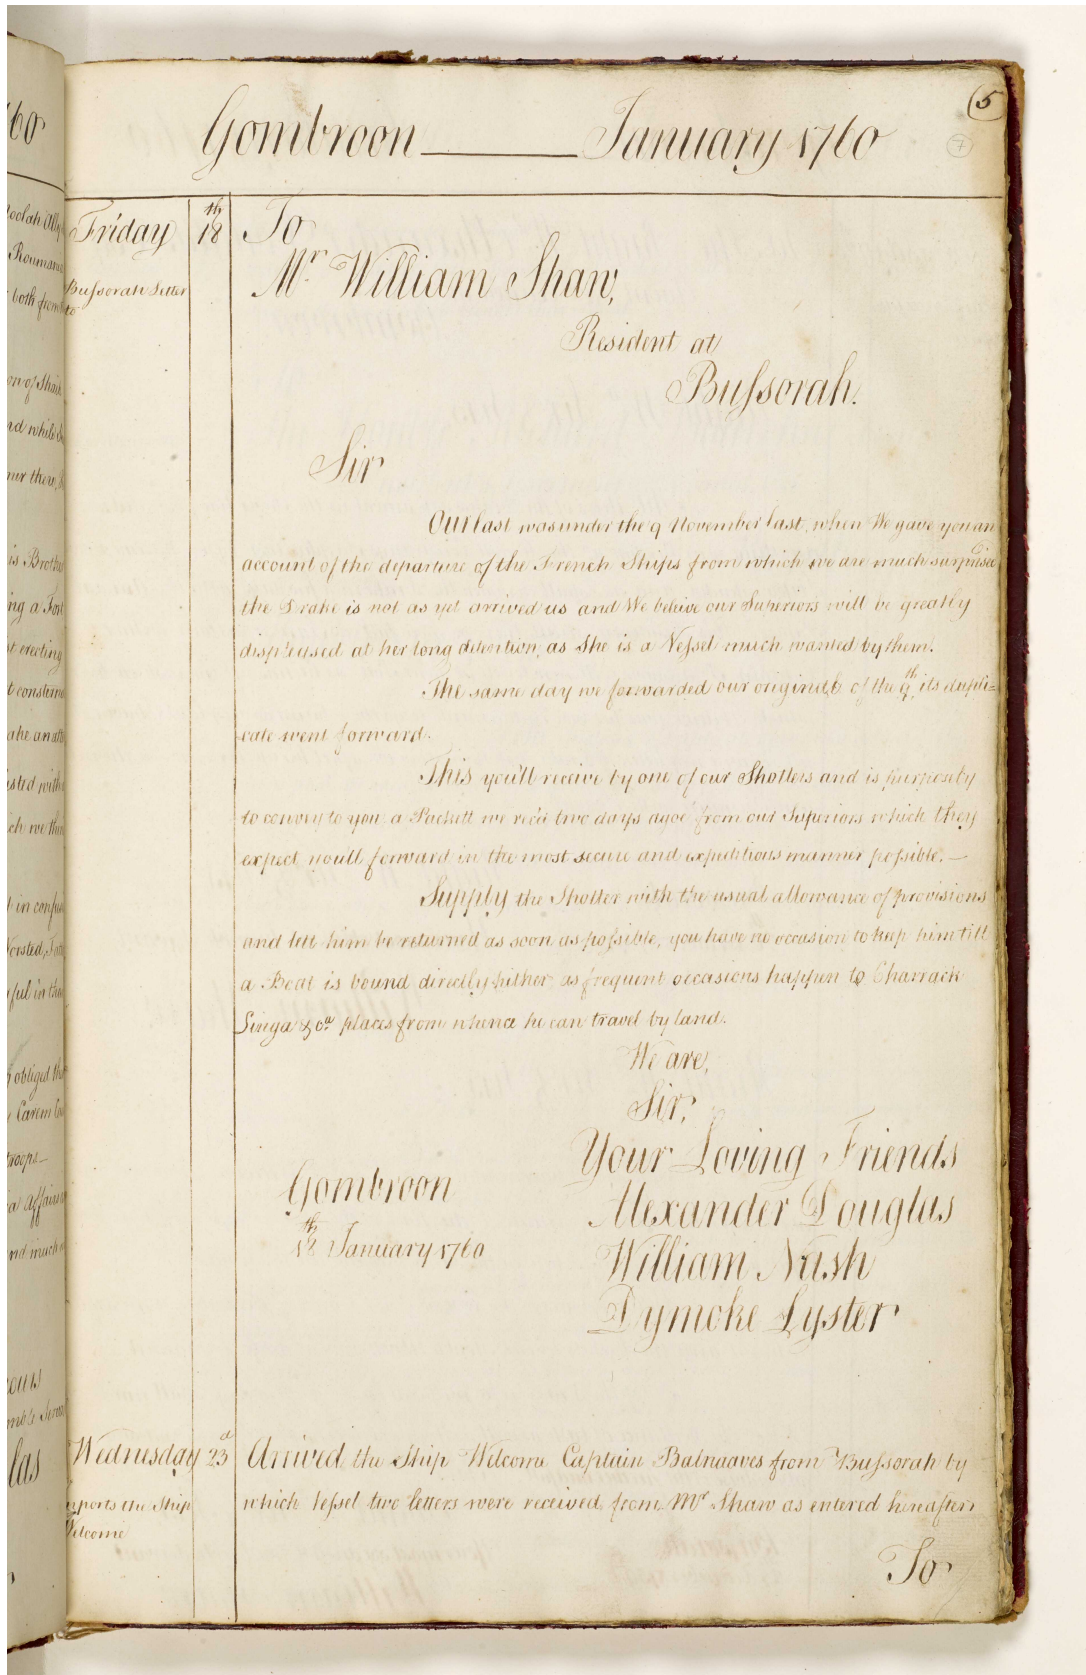 5
Gombroon January 1760
Friday 18th To
Bussorah Letter
to
Mr. William Shaw,
Resident at
Bussorah.
Sir
Our last was under the 9 November last, when We gave you an
account of the departure of the French Ships from which we are much surprised
the Drake is not as yet arrived us and We beleive our Superiors will be greatly
displeased at her long detention, as She is a Vessel much wanted by them.
The same day we forwarded our original of the 9th, its dupli=
cate went forward.
This you'll receive by one of our Shotters and is purposely
to convey to you a Packett we rec'd two days agoe from our Superiors which they
expect you'll forward in the most secure and expeditious manner possible. —
Supply the Shotter with the usual allowance of provisions
and lett him be returned as soon as possible, you have no occasion to keep him till
a Boat is bound directly hither as frequent occasions happen to Charrack
Linga &ca. places from whence he can travel by land.
We are,
Sir,
Your Loving Friends
Gombroon
Alexander Douglas
18th January 1760
William Nash
Dymoke Lyster
Wednesday 23d Arrived the Ship Welcome Captain Balnaaves from Bussorah by
which Vessel two letters were received from Mr Shaw as entered hereafter
imports the Ship
Welcome
To